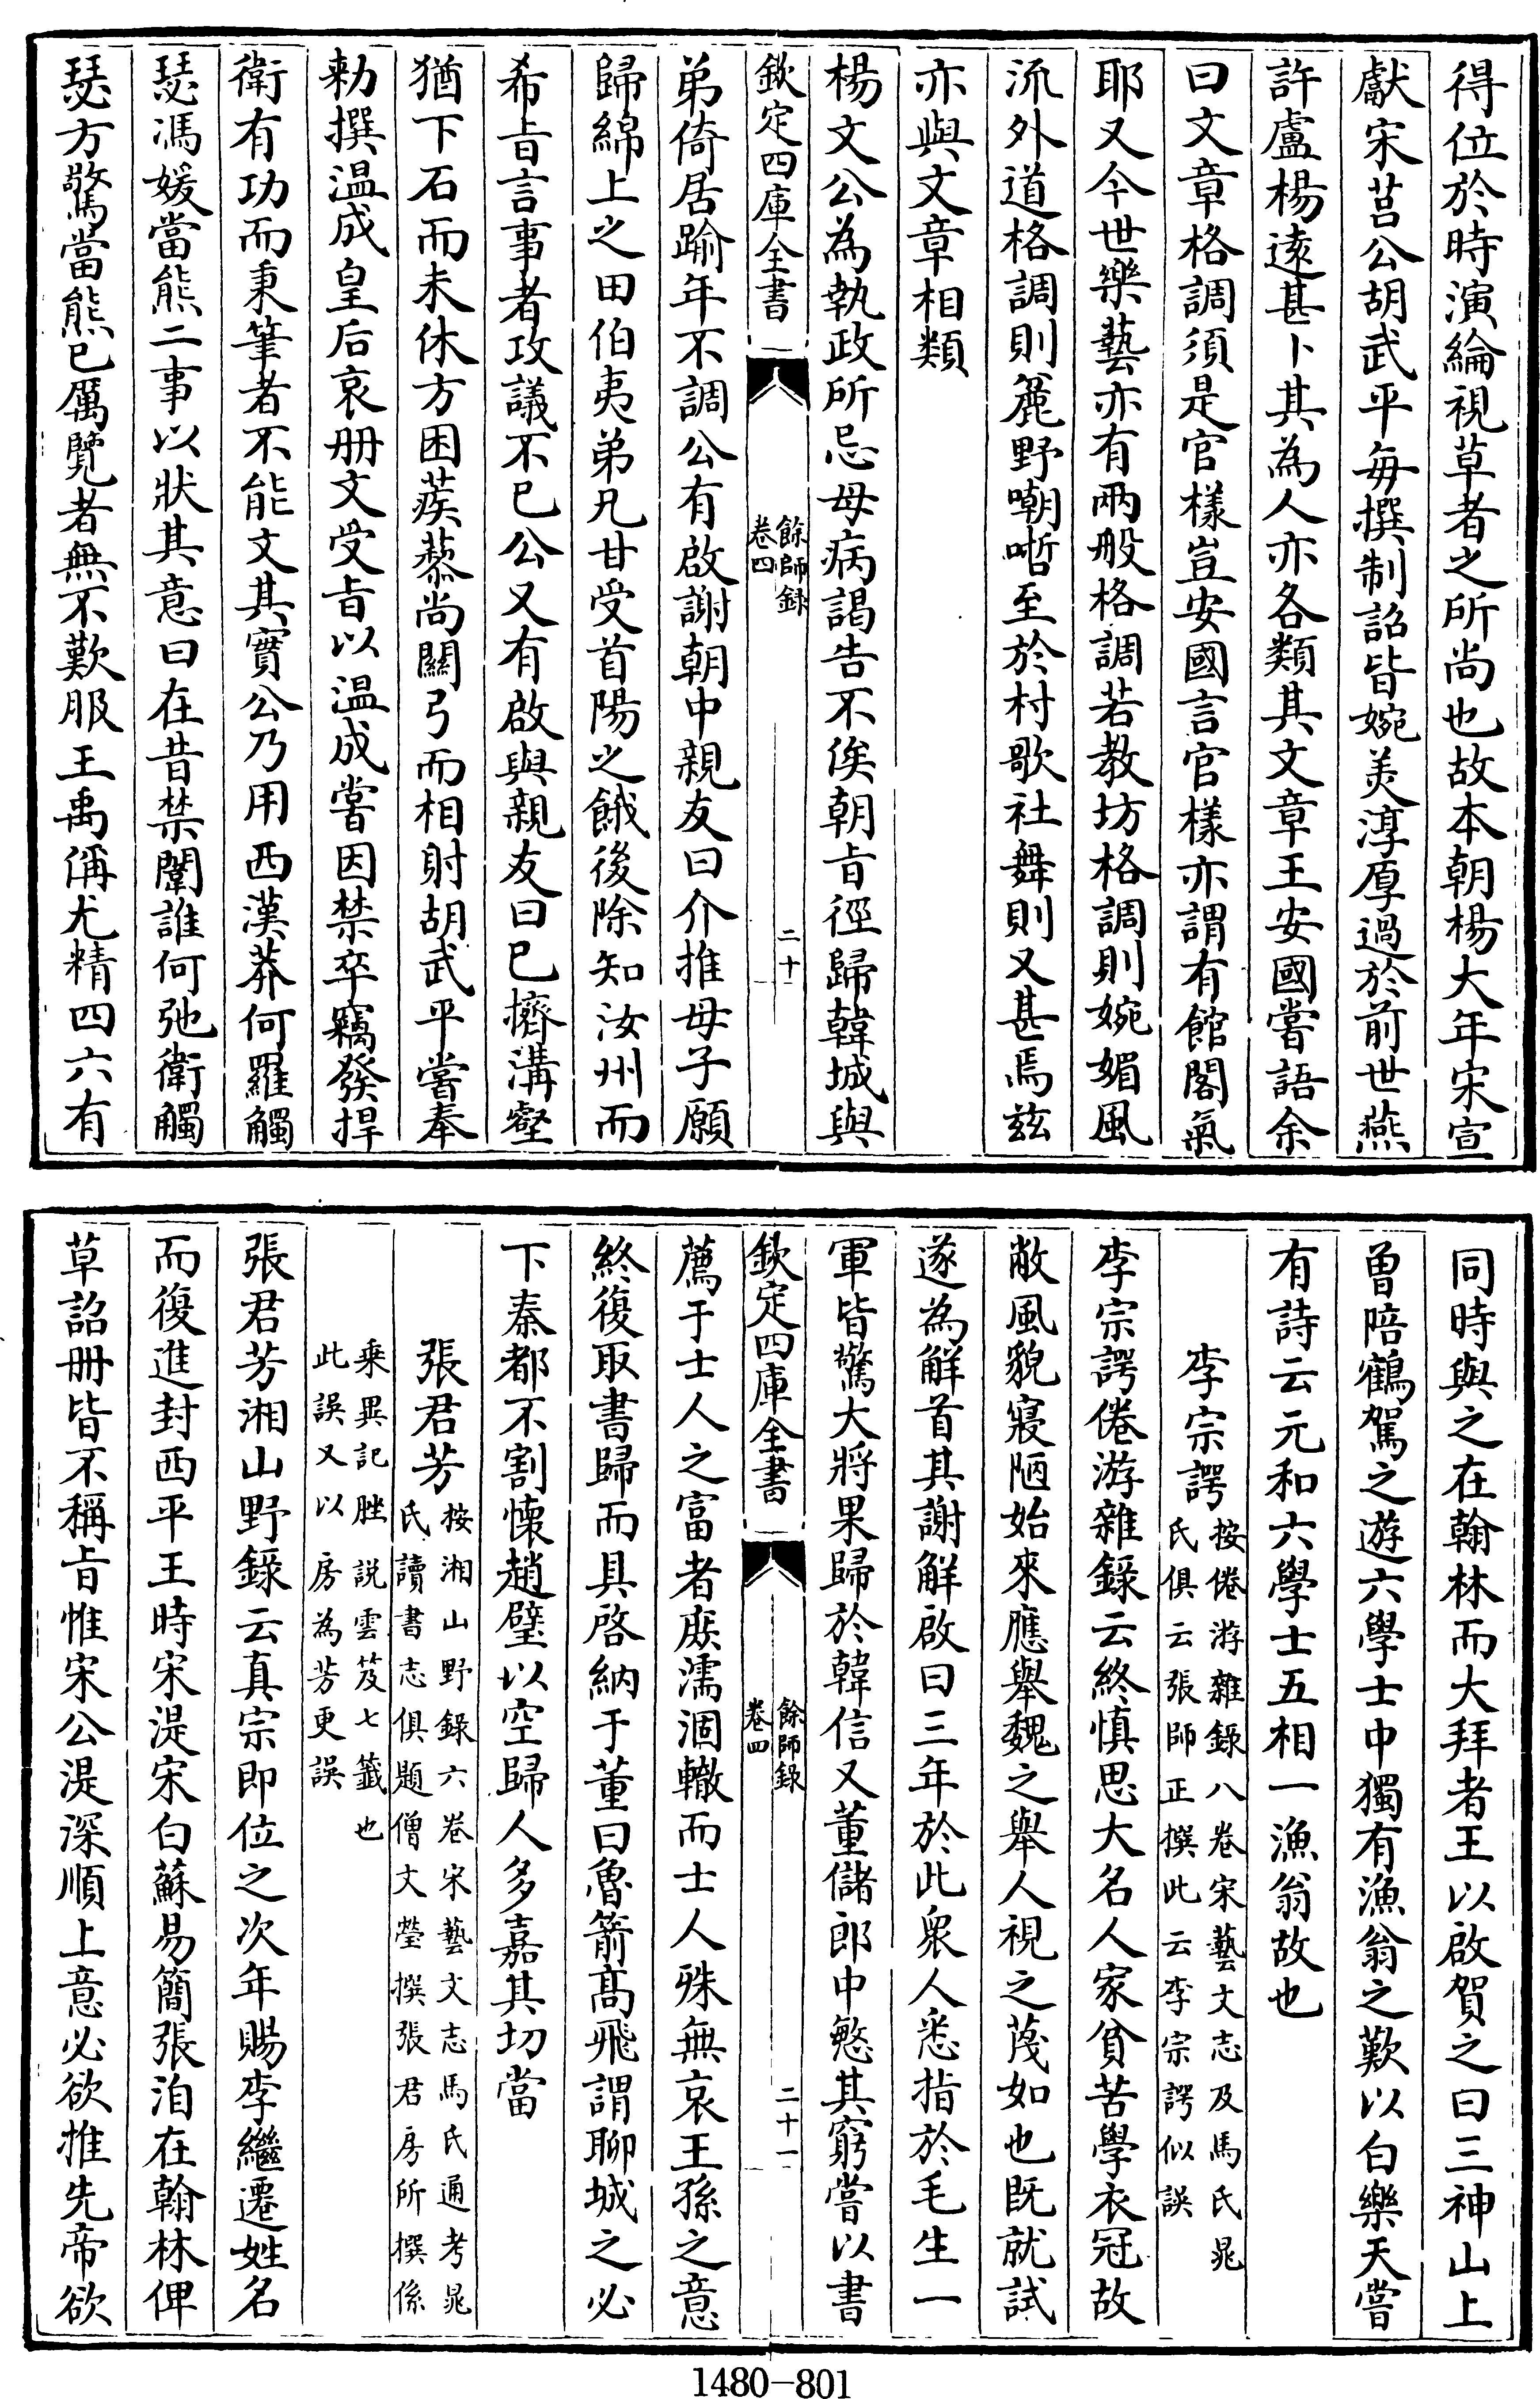 得位於時演綸視草者之所尚也故本朝楊大年宋宣
獻宋莒公胡武平每撰制詔皆婉美淳厚過於前世燕
許盧楊逺甚卜其為人亦各類其文章王安國嘗語余
曰文章格調須是官樣豈安國言官樣亦謂有館閣氣
耶又今世樂藝亦有兩般格調若教坊格調則婉媚風
流外道格調則麄野嘲哳至於村歌社舞則又甚焉兹
亦與文章相類
楊文公為執政所忌母病謁告不俟朝旨徑歸韓城與
欽定四庫全書
餘師録
卷四
二十
弟倚居踰年不調公有啟謝朝中親友曰介推母子願
歸綿上之田伯夷弟兄甘受首陽之餓後除知汝州而
希旨言事者攻議不已公又有啟與親友曰已擠溝壑
猶下石而未休方困蒺藜尚關弓而相射胡武平嘗奉
勅撰温成皇后哀册文受旨以温成嘗因禁卒竊發捍
衛有功而秉筆者不能文其實公乃用西漢莽何羅觸
瑟馮媛當熊二事以狀其意曰在昔禁闈誰何弛衛觸
瑟方驚當熊已厲覽者無不歎服王禹偁尤精四六有
同時與之在翰林而大拜者王以啟賀之曰三神山上
曽陪鶴駕之遊六學士中獨有漁翁之歎以白樂天嘗
有詩云元和六學士五相一漁翁故也
李宗諤
按倦游雜録八卷宋藝文志及馬氏晁
氏俱云張師正撰此云李宗諤似誤
李宗諤倦游雜録云終慎思大名人家貧苦學衣冠故
敝風貌寢陋始來應舉魏之舉人視之蔑如也既就試
遂為解首其謝解啟曰三年於此衆人悉指於毛生一
軍皆驚大將果歸於韓信又董儲郎中慜其窮嘗以書
欽定四庫全書
餘師録
卷四
二十一
薦于士人之富者庶濡涸轍而士人殊無哀王孫之意
終復取書歸而具啓納于董曰魯箭髙飛謂聊城之必
下秦都不割懷趙璧以空歸人多嘉其切當
張君芳
按湘山野録六卷宋藝文志馬氏通考晁
氏讀書志俱題僧文瑩撰張君房所撰係
乘異記脞説雲笈七籤也
此誤又以房為芳更誤
張君芳湘山野録云真宗即位之次年賜李繼遷姓名
而復進封西平王時宋湜宋白蘇易簡張洎在翰林俾
草詔冊皆不稱旨惟宋公湜深順上意必欲推先帝欲
1480-801